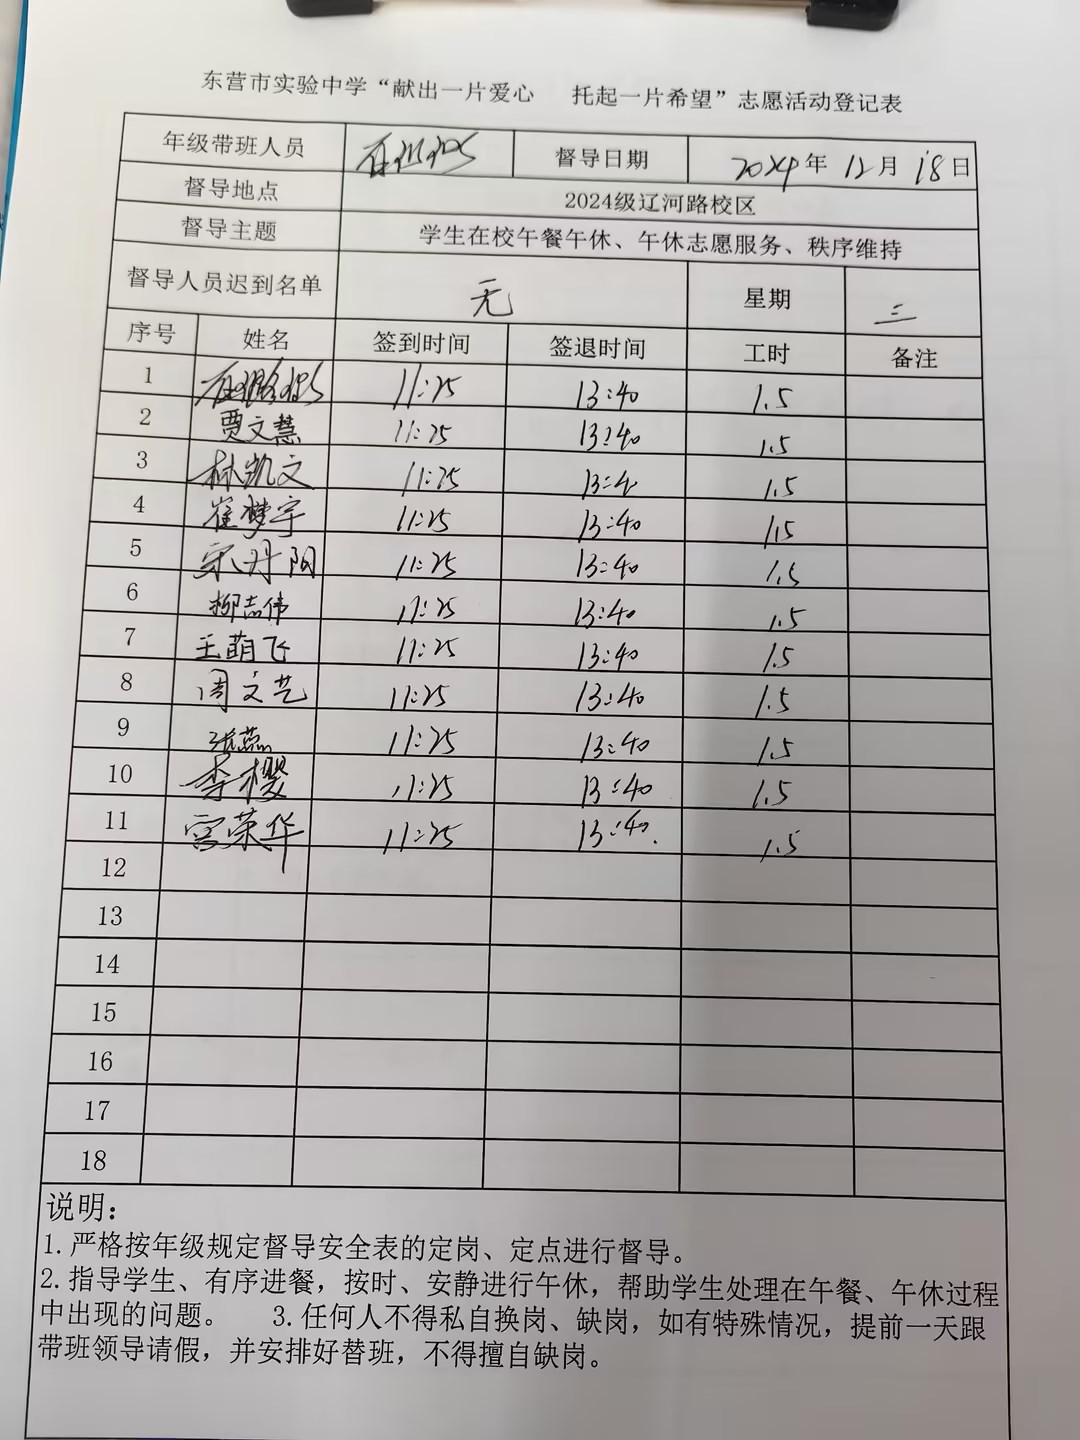 东营市实验中学“献出一片爱心 托起一片希望”志愿活动登记表
年级带班人员 督导日期 2024年 12月 18日
督导地点 2024级辽河路校区
督导主题 学生在校午餐午休、午休志愿服务、秩序维持
督导人员迟到名单 无 星期 三
序号 姓名 签到时间 签退时间 工时 备注
1 11:25 13:40 1.5
2 贾文慧 11:25 13:40 1.5
3 林凯文 11:25 13:4 1.5
4 崔梦宇 11:25 13:40 1.5
5 宋丹阳 11:25 13:40 1.5
6 柳志伟 11:25 13:40 1.5
7 王萌飞 11:25 13:40 1.5
8 周文艺 11:25 13:40 1.5
9 张燕 11:25 13:40 1.5
10 李樱 11:25 13:40 1.5
11 宫荣华 11:25 13:40. 1.5
12
13
14
15
16
17
18
说明：
1.严格按年级规定督导安全表的定岗、定点进行督导。
2.指导学生、有序进餐，按时、安静进行午休，帮助学生处理在午餐、午休过程
中出现的问题。 3.任何人不得私自换岗、缺岗，如有特殊情况，提前一天跟
带班领导请假，并安排好替班，不得擅自缺岗。